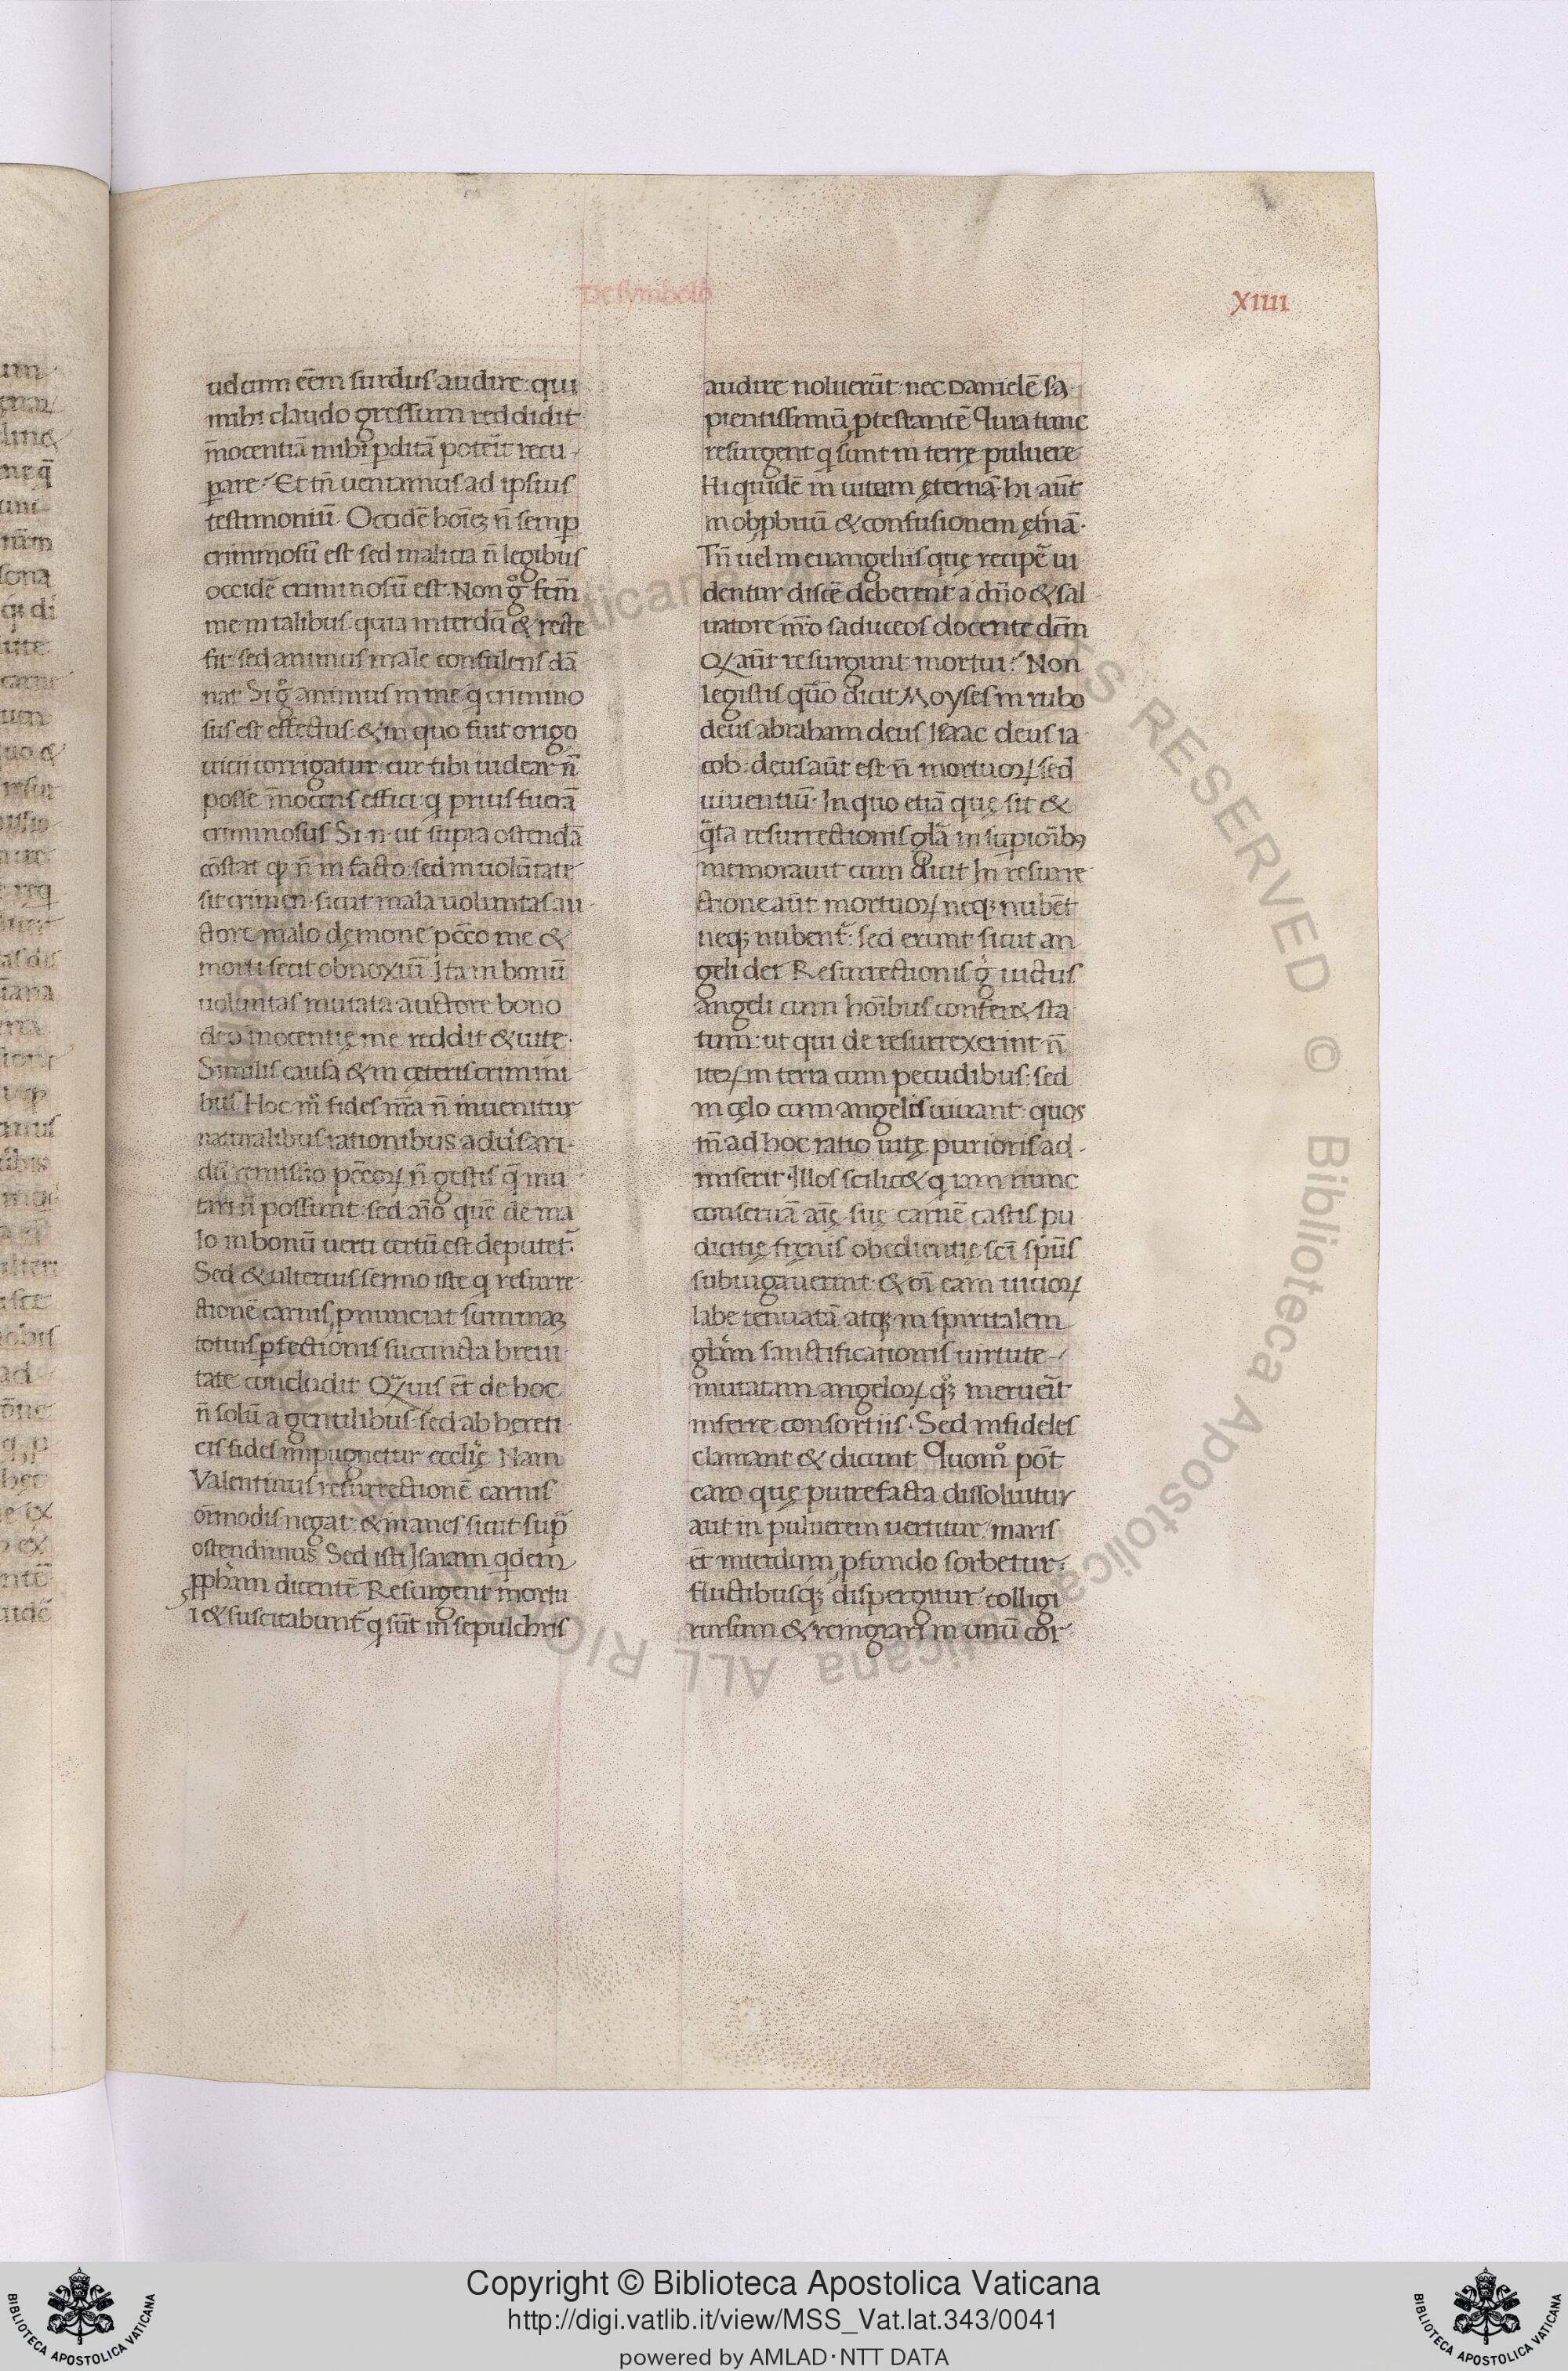 De symbolo
XIIII
ud cum eēm surdus audire: qui
mihi claudo gressum reddidit
īnocentiā mihi pditā poterit recu
pare. Et tn̄ ueniamus ad ipsius
testimoniū. Occidē hoīeȝ n̄ semp
criminosū est sed malicia n̄ legibus
occidē criminosū est. Non gͦ fcm̄
me in talibus quia interdū & recte
fit: sed animus male consulens dā
nat. Si gͦ animus in me q crimino
sus est effectus: & in quo fuit origo
uicii corrigatur: cur tibi uidear n̄
posse īnocens effici: q prius fuerā
criminosus Si .n. ut supra ostendā
cōstat qȝ n̄ in facto: sed in uolūtate
sit crimen. sicut mala uoluntas au
ctore malo demone pc̄co me &
morti fecit obnoxiuū Ita in bonū
uoluntas mutata auctore bono
deo īnocentię me reddit & uite.
Similis causa & in çeteris crimini
bus Hoc mͦ fides nr̄a n̄ inuenitur
naturalibus rationibus aduersari
dū remissio pc̄coꝝ n̄ gestis q̄ mu
tari n̄ possunt: sed aīo quē de ma
lo in bonū uerti certū est deputet᷑.
Sed & ulterius sermo iste q resurre
ctionē carnis ꝓnunciat summaȝ
totius ꝑfectionis succincta breui
tate concludit Quis ēt de hoc
n̄ solū a gentilibus: sed ab hereti
cis fides impugnetur eccl̄ię Nam
Valentinus resurrectionē carnis
om̄modis negat: & manes sicut supᷓ
ostendimus Sed isti Isaiam qdem
ꝓpham dicentē Resurgent mortu
i & suscitabunt᷑ q sūt in sepulchris
audire noluerūt: nec Danielē sa
pientissimū ꝓtestantē Quia tunc
resurgent q sunt in terrę puluere
Hi quidē in uitam ęternā: hi aūt
in obpbriū & confusionem ęt̓nā.
Tn̄ uel in euangeliis quę recipē ui
dentur discē deberent a dn̄o & sal
uatore nr̄o saduceos docente dc̄m
Q aūt resurgunt mortui: Non
legistis quō dicit Moyses in rubo
deus abraham deus Isaac deus ia
cob: deus aūt est n̄ mortuoꝝ sed
uiuentiū. In quo etiā quę sit &
q̄ta resurrectionis gl̄a in supioribꝰ
memorauit cum dicit In resurre
ctione aūt mortuoꝝ neqȝ nubēt
neqȝ nubent᷑: sed erunt sicut an
geli dei Resurrectionis g̓ uictus
angeli cum hoībus confer& sta
tum: ut qui de resurrexerint n̄
iteꝝ in terra cum pecudibus: sed
in cęlo cum angelis uiuant: quos
tn̄ ad hoc ratio uitę purioris ad
miserit. Illos scilic& q iam nunc
conseruā aīę suę carnē castis pu
dicitię frenis obedientię scī spūs
subiugauerint: & oī eam uicioꝝ
labe tenuatā atqȝ in spiritalem
glām sanctificationis uirtute
mutatam angeloꝝ qȝ meruerīt
inferre consortiis. Sed infideles
clamant & dicunt Quomͦ pōt
caro quę putrefacta dissoluitur
aut in puluerem uertitur maris
ēt interdum ꝓfundo sorbetur:
fluctibusqȝ dispergitur colligi
rursum & remgiari in unū cor
Copyright © Biblioteca Apostolica Vaticana
http://digi.vatlib.it/view/MSS_Vat.lat.343/0041
powered by AMLAD·NTT DATA